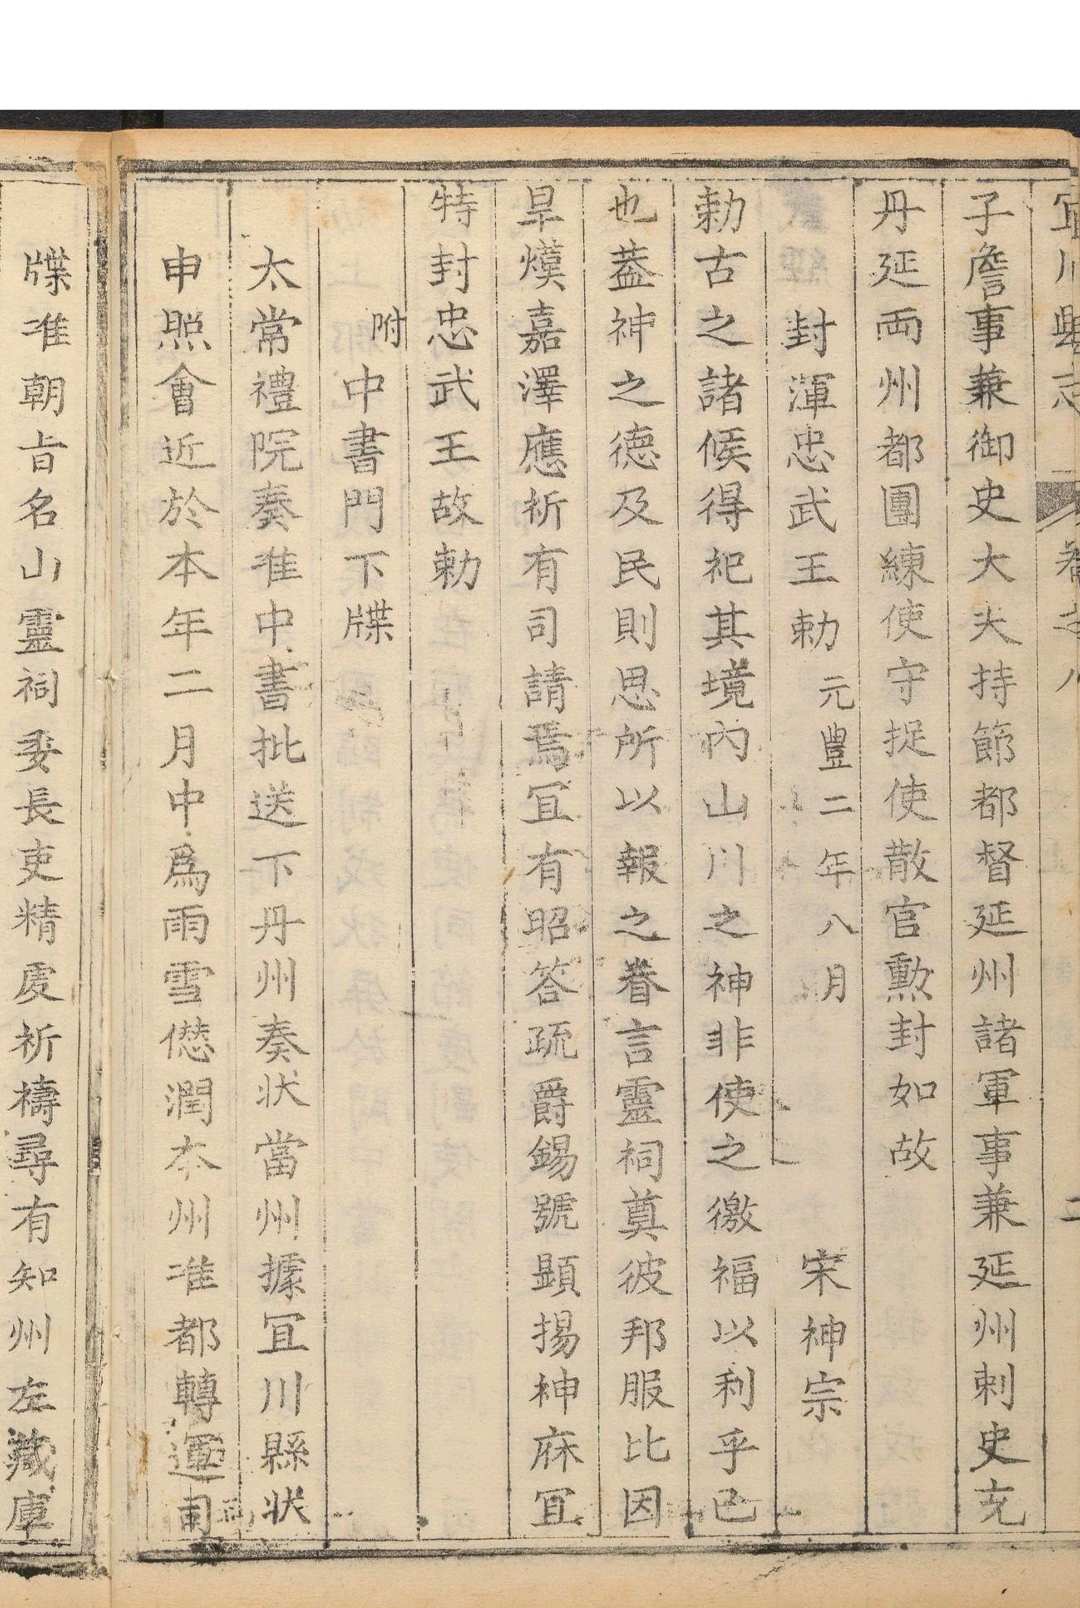 宜川縣志 卷之八 二
子詹事兼御史大夫持節都督延州諸軍事兼延州刺史充
丹延両州都團練使守捉使散官勲封如故
封渾忠武王勅 元豐二年八月 宋神宗
勅古之諸候得祀其境內山川之神非使之徼福以利乎己
也葢神之德及民則思所以報之眷言靈祠奠彼邦服比因
旱熯嘉澤應祈有司請焉冝有昭答疏爵錫號顕揚神庥冝
特封忠武王故勅
附中書門下牒
太常禮院奏准中書批送下丹州奏状當州據冝川縣状
申照會近於本年二月中爲雨雪愆潤本州准都轉運司
牒准朝㫖名山靈祠委長吏精虔祈禱尋有知州左藏庫